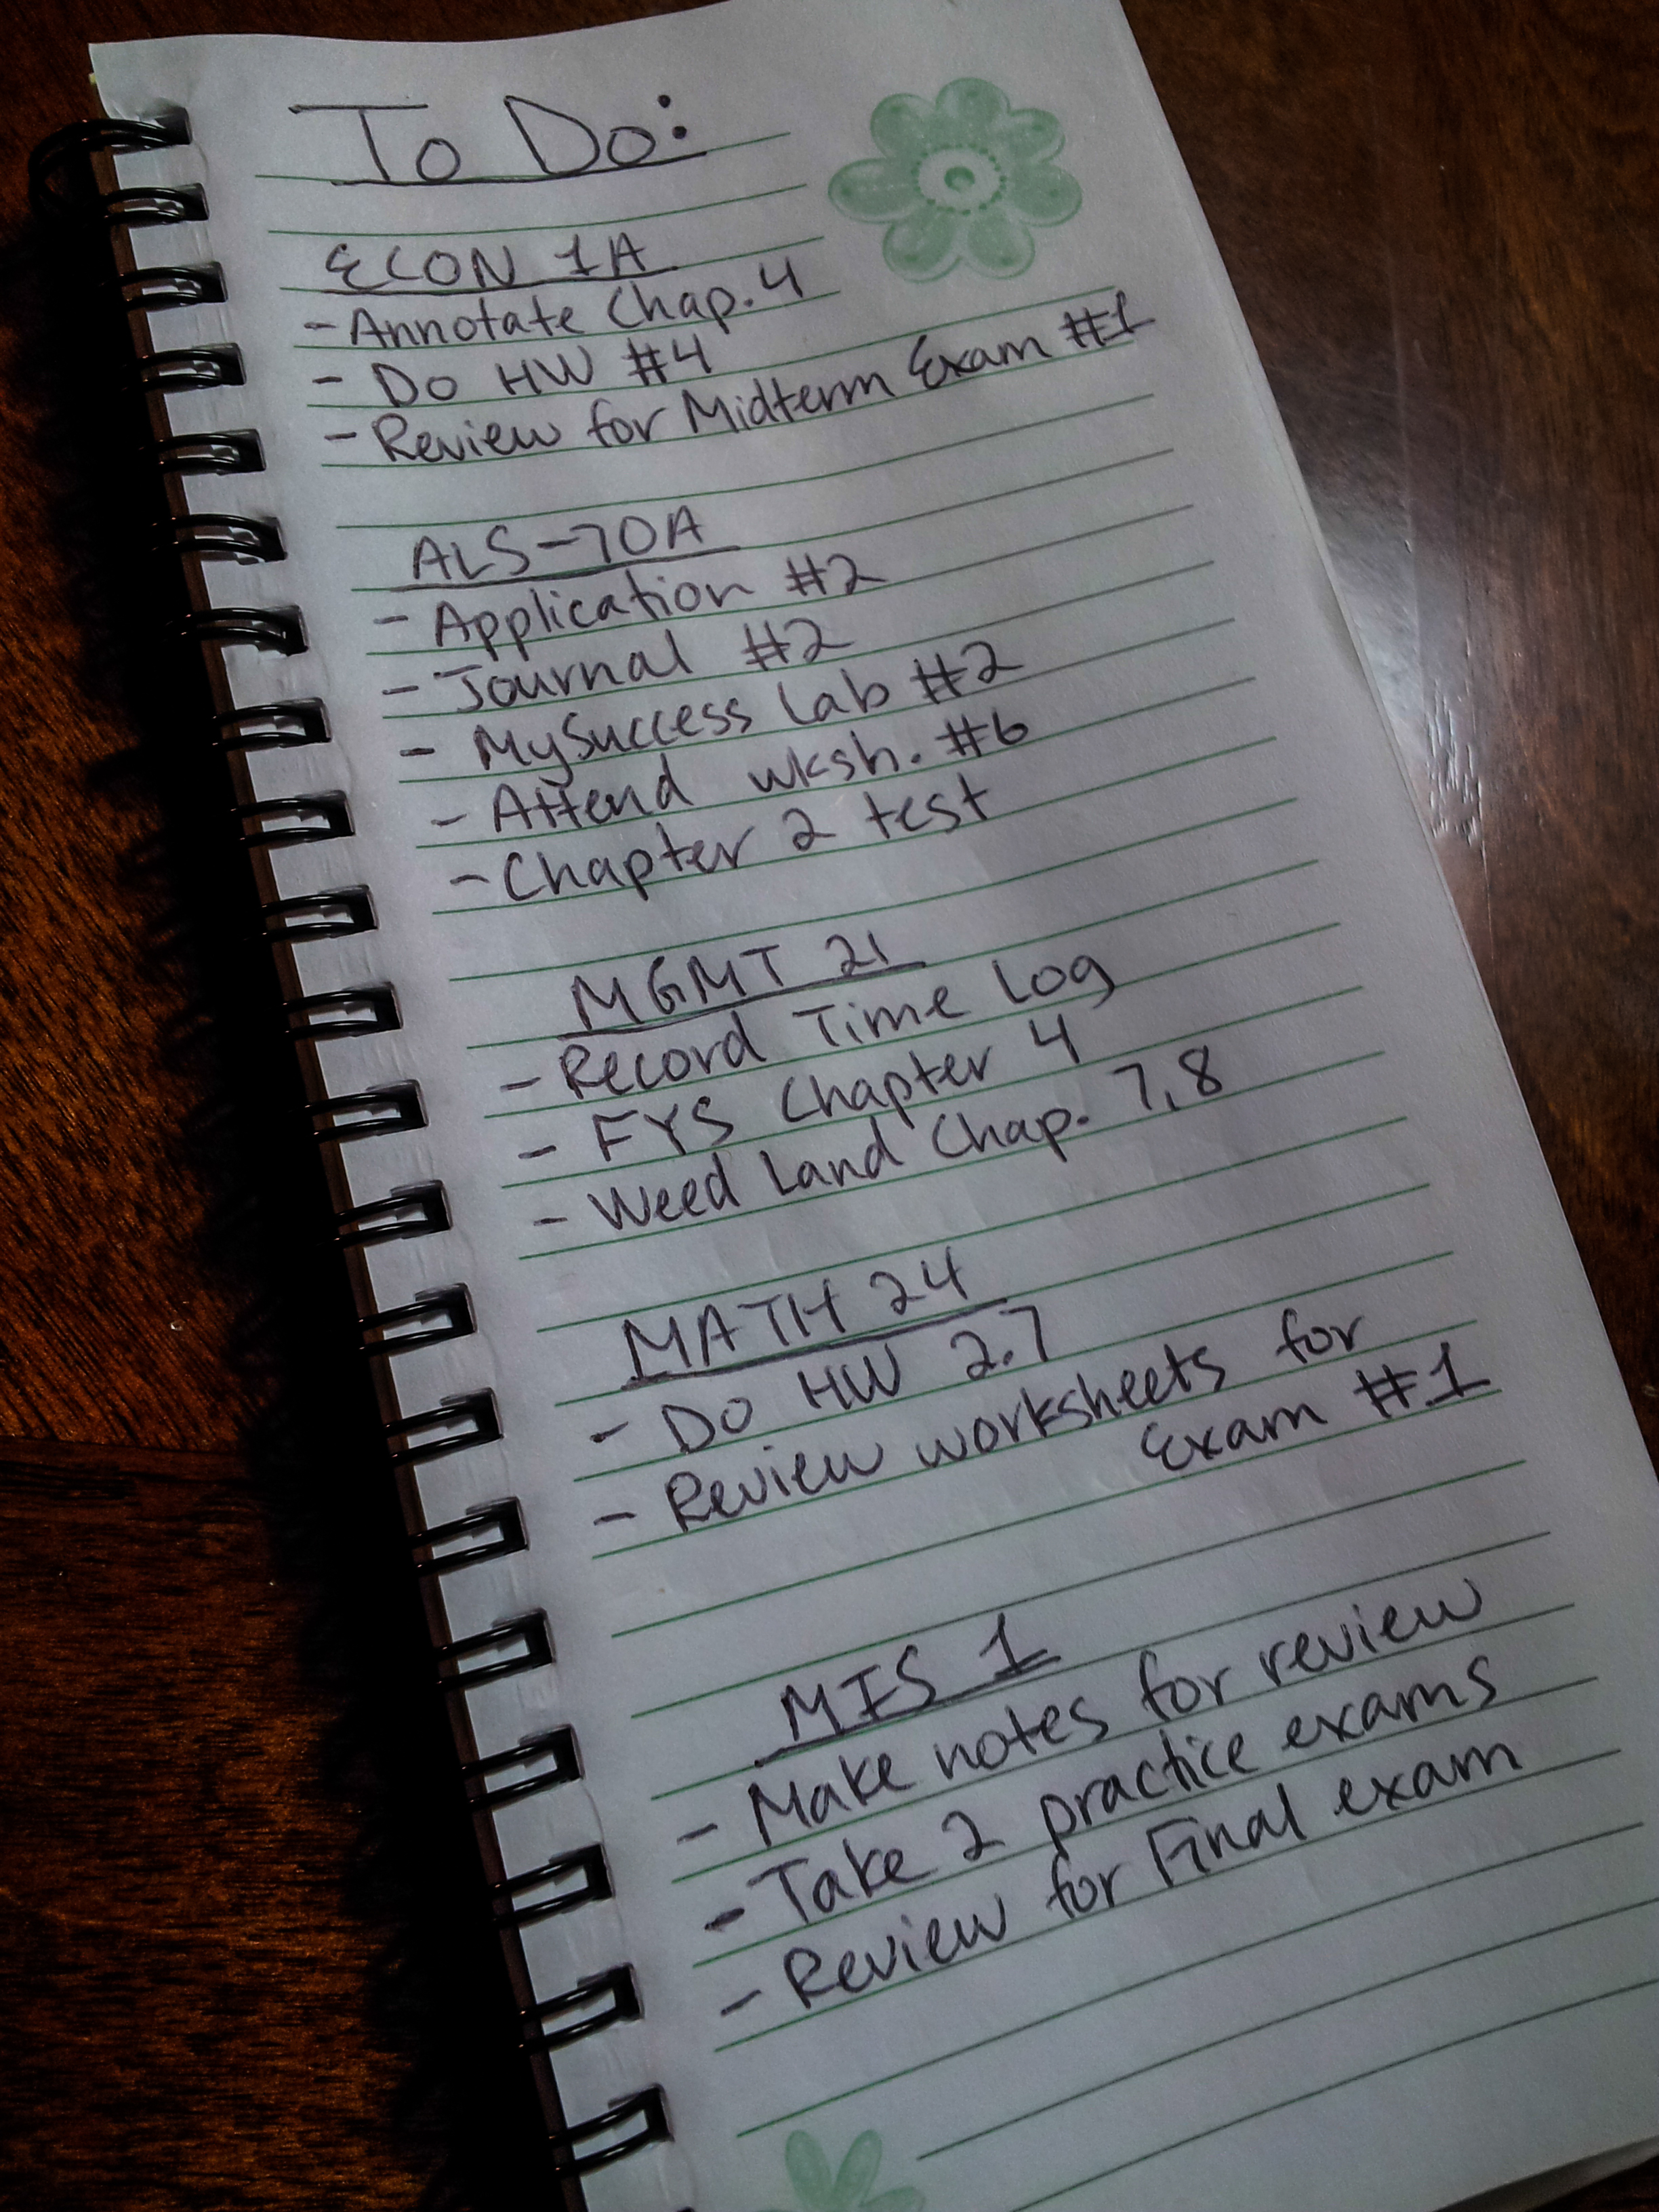 To Do:
ECON 1A
- Annotate Chap. 4
- Do HW #4
- Review for Midterm Exam #1
ALS-70A
- Application #2
- Journal #2
- MySuccess Lab #2
- Attend wksh. #6
- Chapter 2 test
MGMT 21
- Record Time Log
- FYS Chapter 4
- Weed Land Chap. 7,8
MATH 24
- Do HW 2.7
- Review worksheets for
Exam #1
MIS 1
- Make notes for review
- Take 2 practice exams
- Review for Final exam